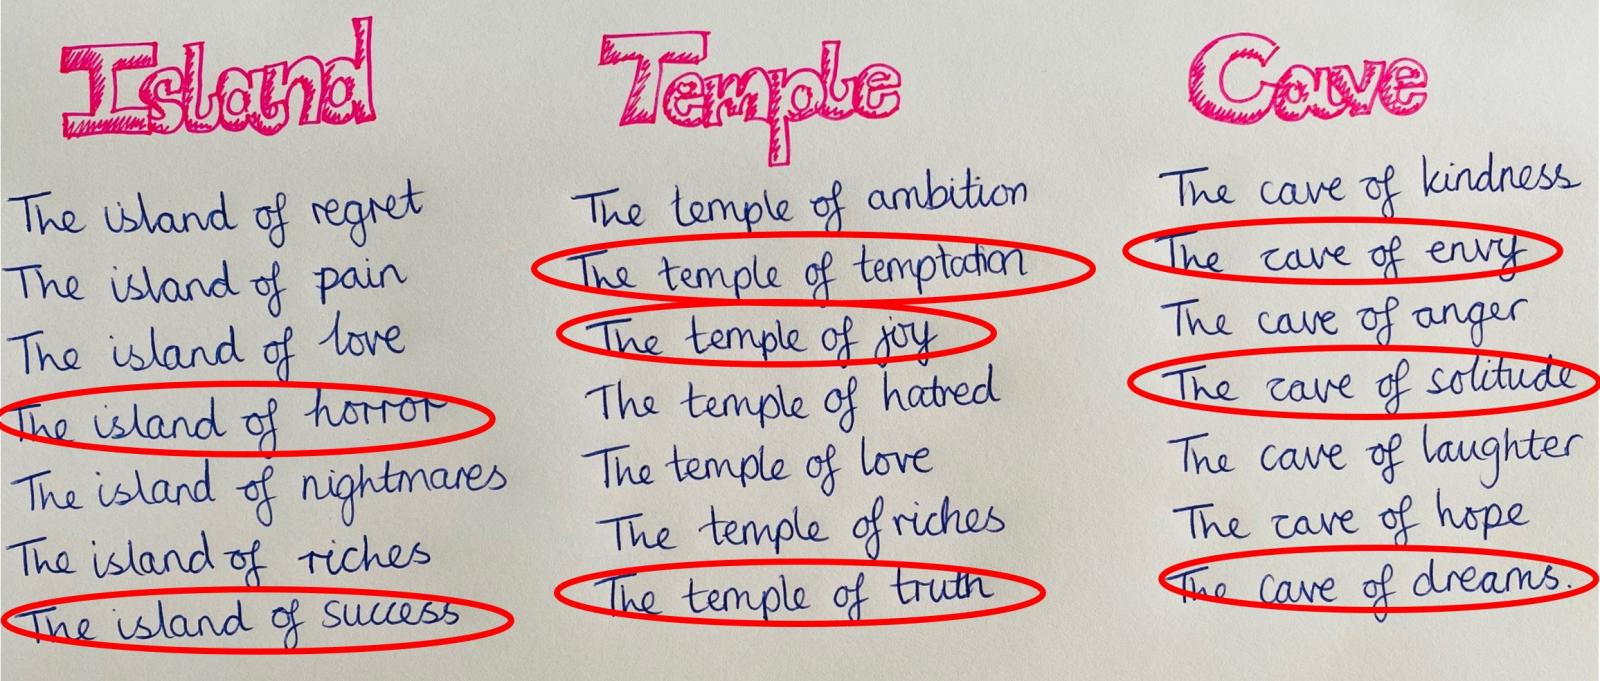 Island
The island of regret
The island of pain
The island of love
The island of horror
The island of nightmares
The island of riches
The island of success
Temple
The temple of ambition
The temple of temptation
The temple of joy
The temple of hatred
The temple of love
The temple of riches
The temple of truth
Cave
The cave of kindness
The cave of envy
The cave of anger
The cave of solitude
The cave of laughter
The cave of hope
The cave of dreams.